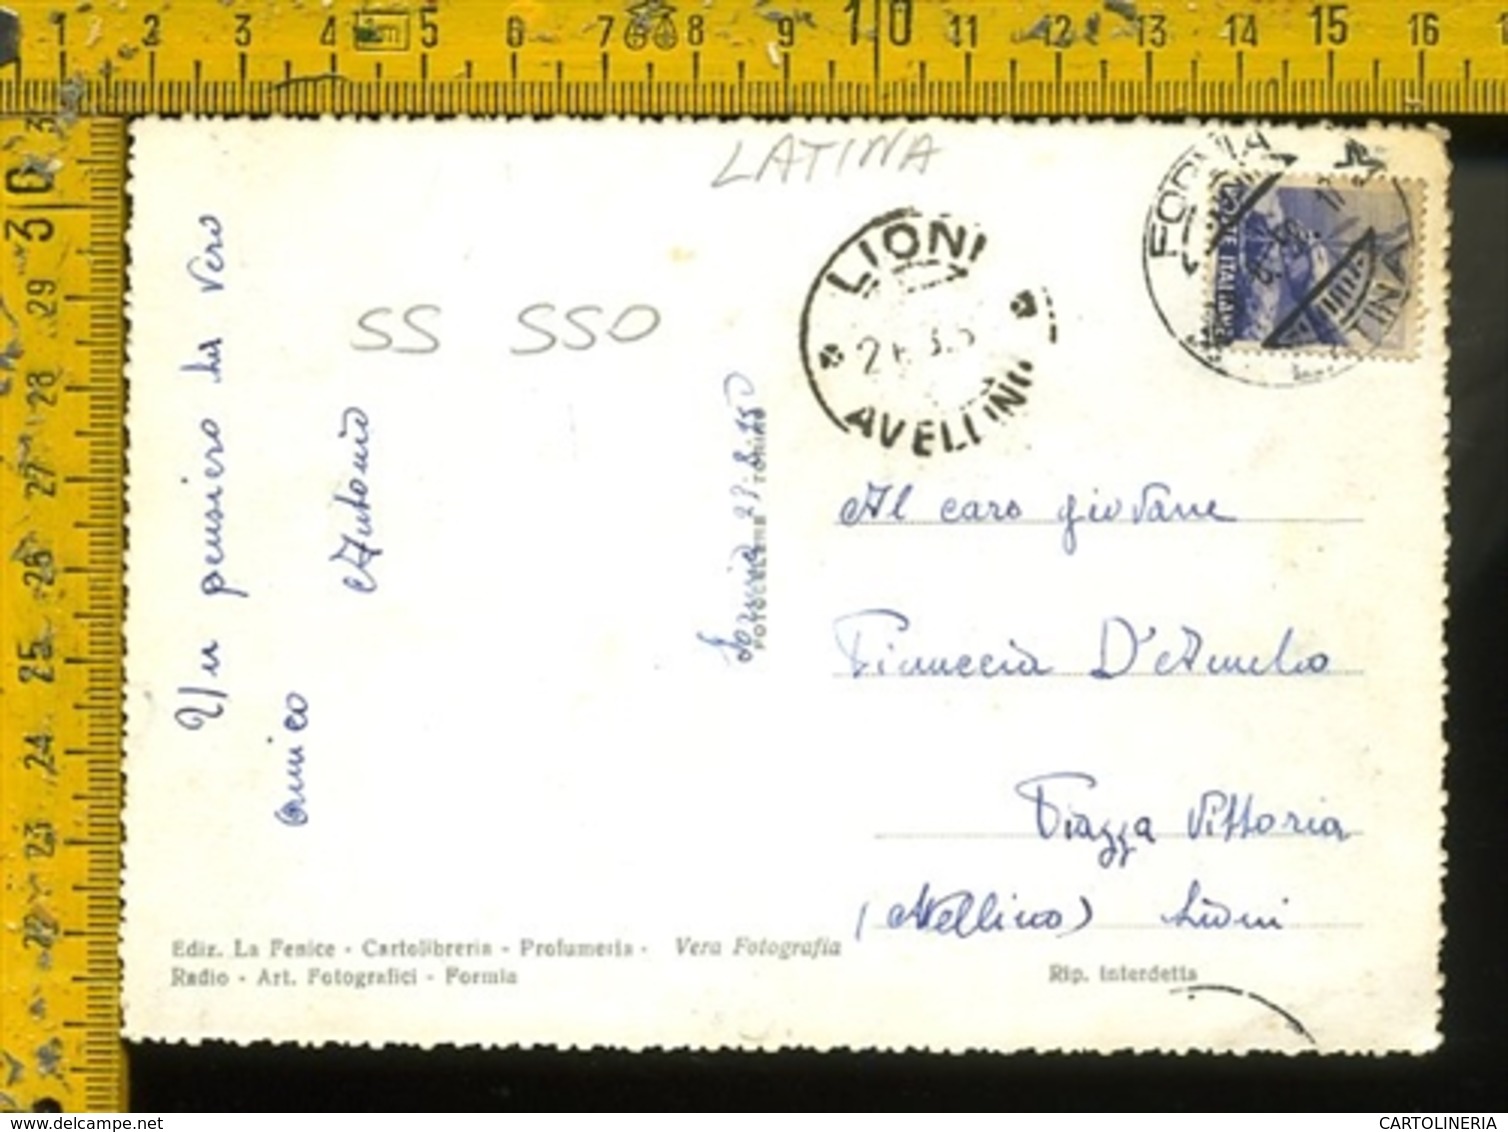 1 2 3 4 cm 5 6 7 8 9 10 11 12 13 14 15 16
30
29
28
27
26
25
24
23
22
LATINA
SS SSO
LIONI
AVELLINO
FORMIA
POSTE ITALIANE
Un pensiero da vero
amico
Antonio
Formia
TORINO
Al caro giovane
Pinuccia D'Amelio
Piazza Vittoria
(Avellino) Lioni
Ediz. La Fenice - Cartolibreria - Profumeria - Vera Fotografia
Radio - Art. Fotografici - Formia
Rip. Interdetta
CARTOLINERIA